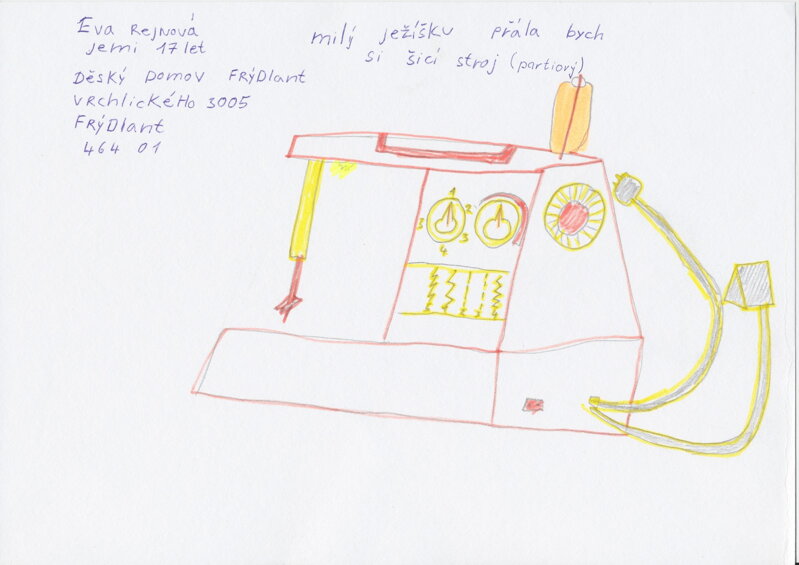 Eva Rejnová
jemi 17 let
Děský Domov FRÝDlant
VRCHlickéHo 3005
FRÝDlant
464 01
milý ježíšku přála bych
si šicí stroj (partiový)
1
2
3
3
4